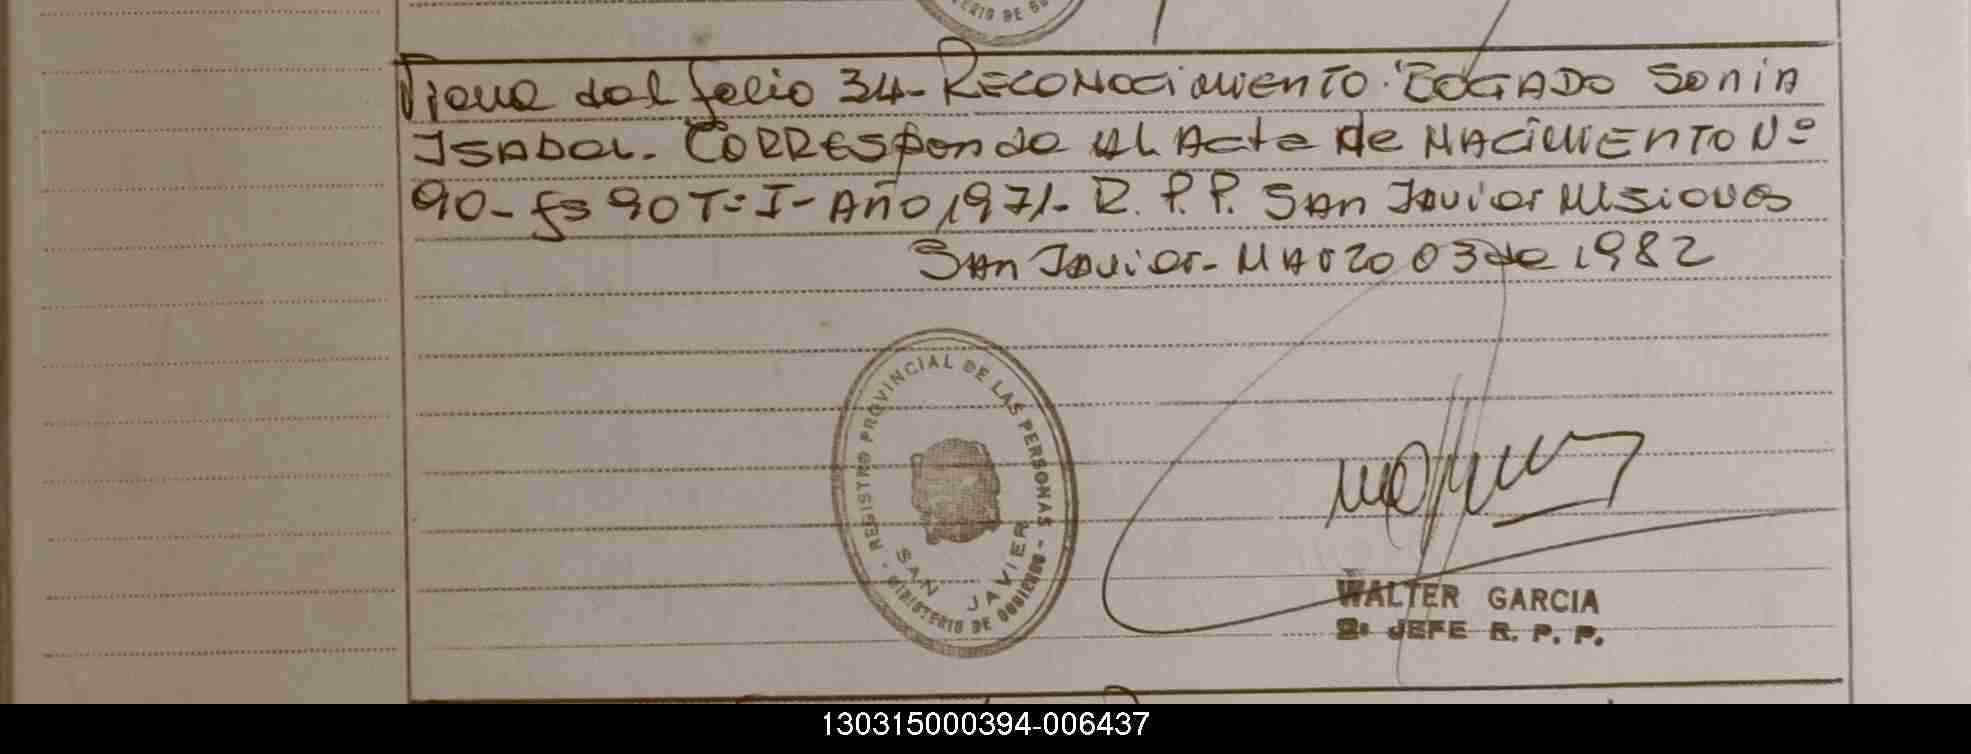 TERIO DE GO
Viene del folio 34- RECONOCiMiENTO. BOGADO SoniA
ISABEL. CORRESponde al Acta de NACiMiENTO Nº
90- fs 90 Tº I- Año 1971- R. P. P. SAn Javier Misiones
SAn Javier- MARZO 03 de 1982
REGISTRO PROVINCIAL DE LAS PERSONAS
SAN JAVIER
MINISTERIO DE GOBIERNO
WALTER GARCIA
2º JEFE R. P. P.
130315000394-006437